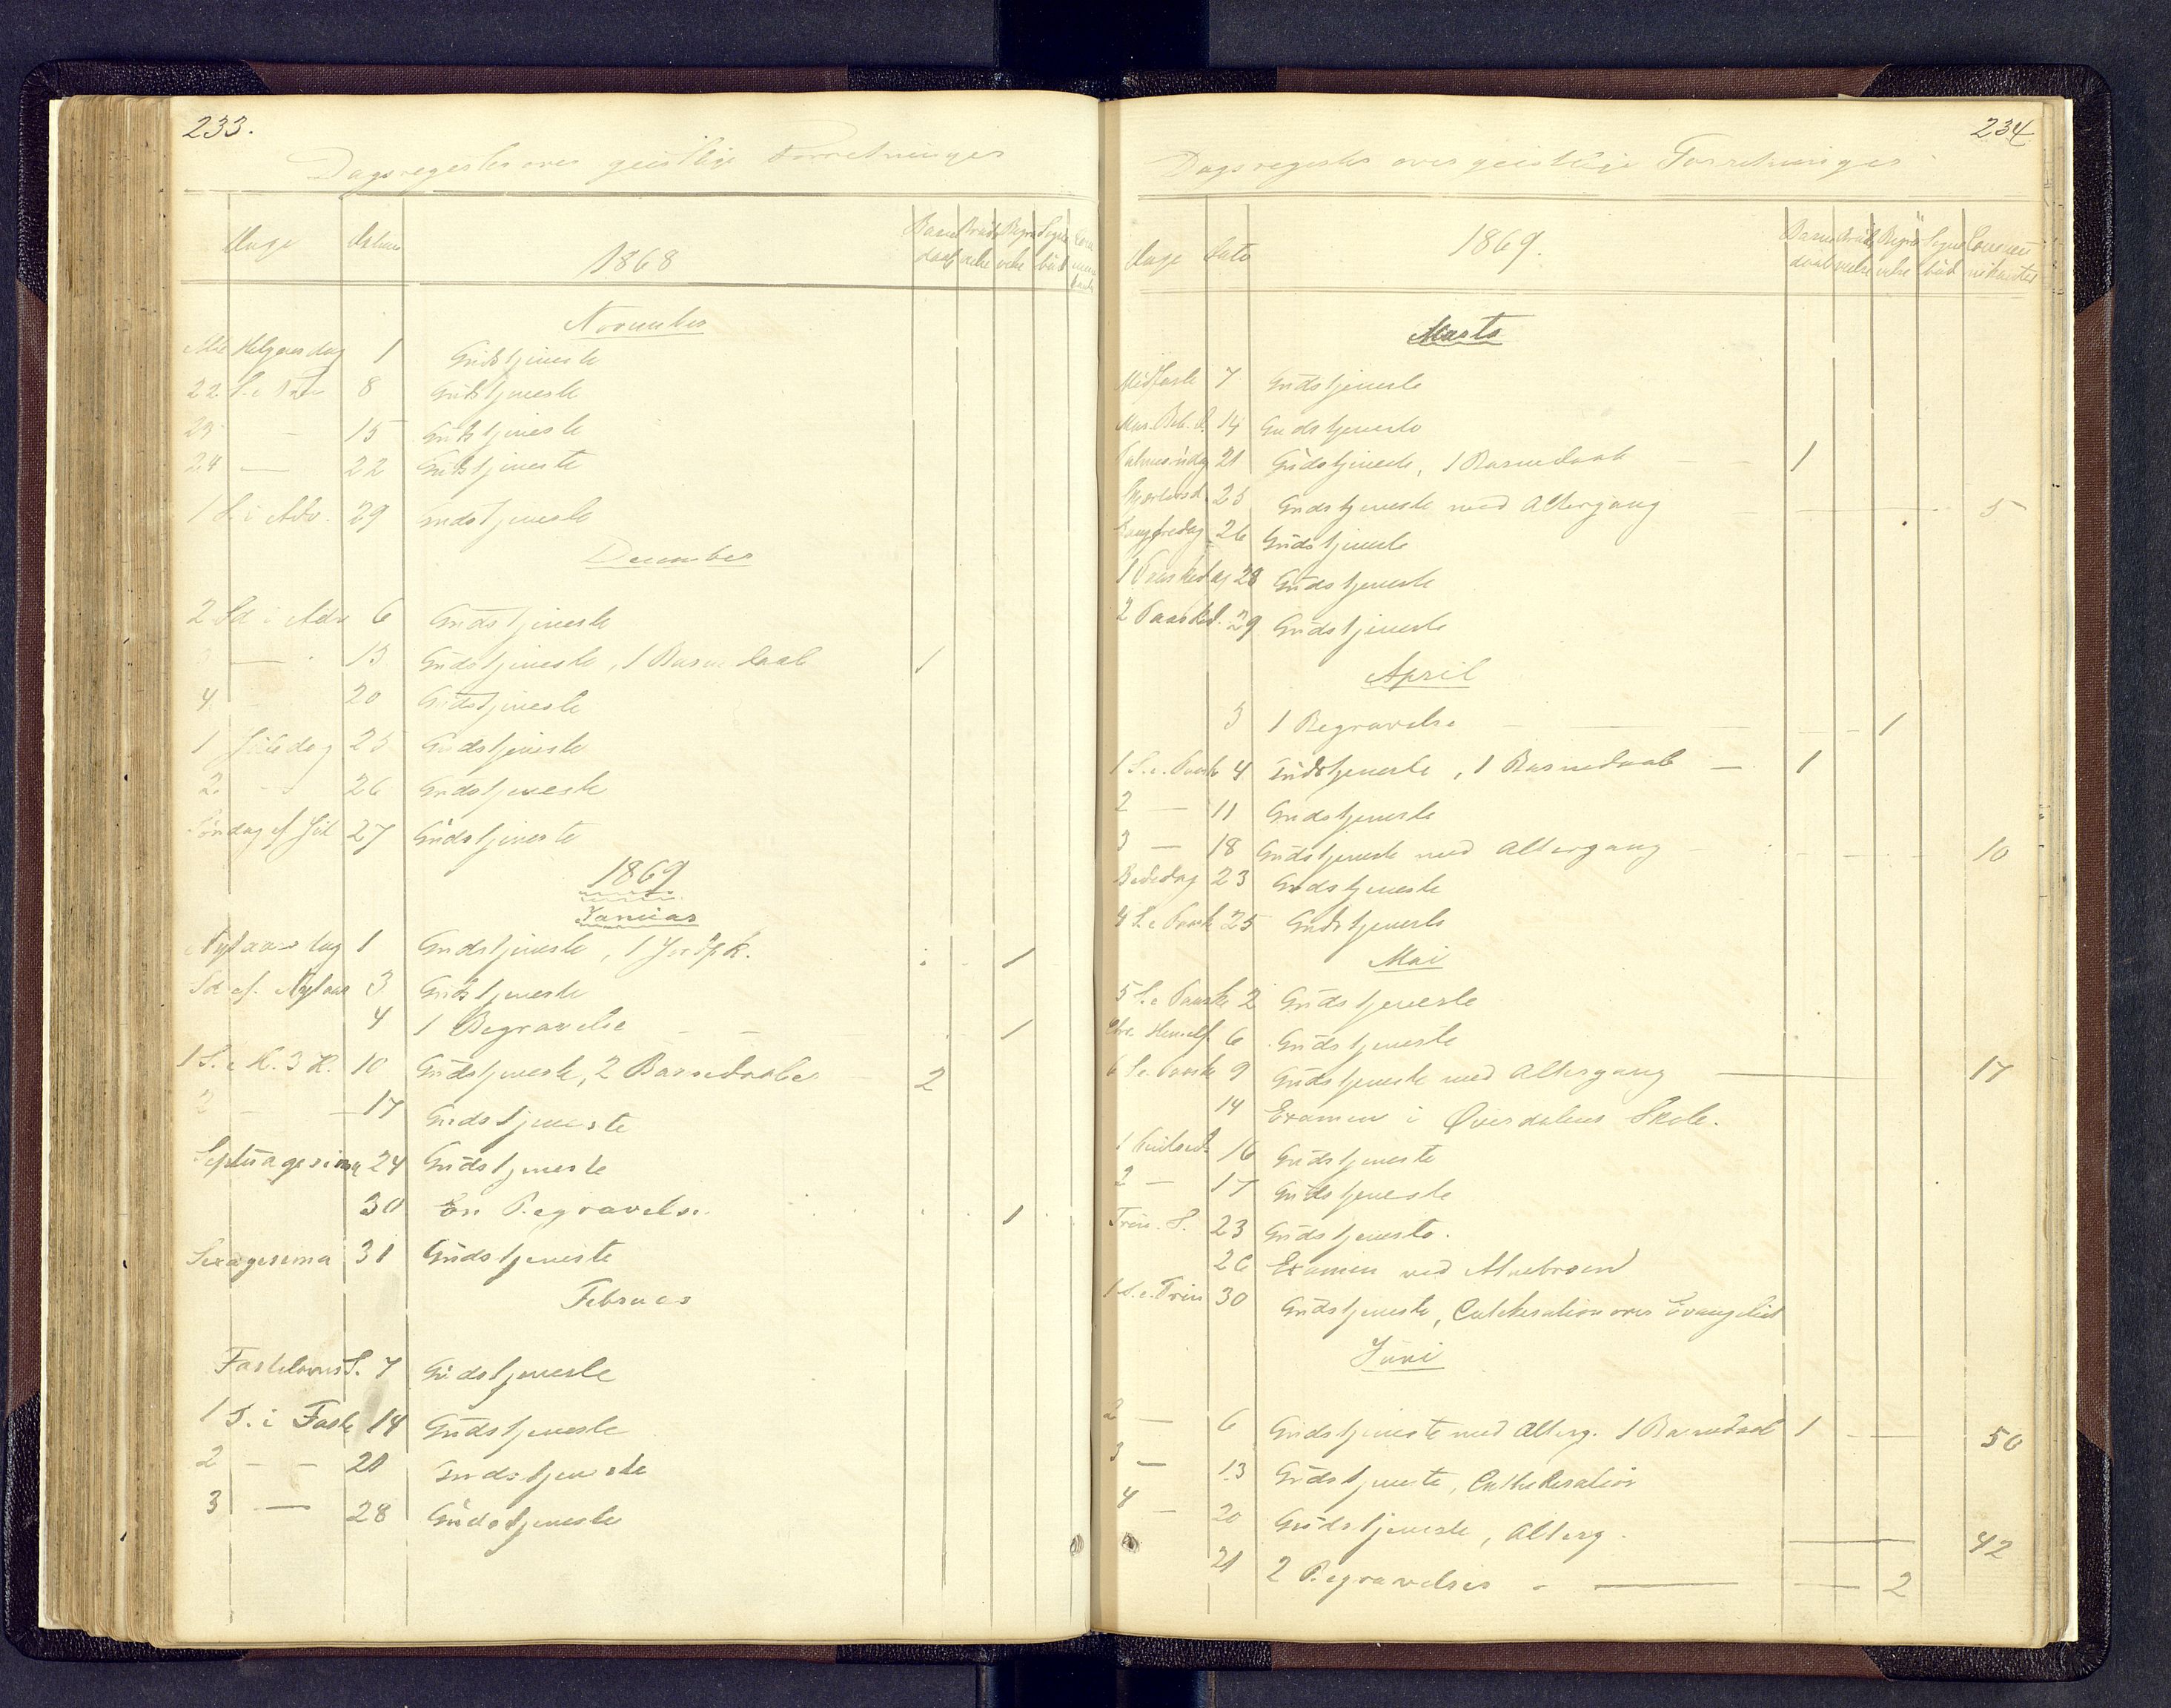 233.
Dagsregister over geistlige Forretninger
Dage Datum 1868 Barne daab Brude vielse Begra velse Sogne bud Com muni kanter
November
Alle Helgensdag 1 Gudstjeneste
22 S. e Trin 8 Gudstjeneste
23 - 15 Gudstjeneste
24 — 22 Gudstjeneste
1 S. i Adv. 29 Gudstjeneste
December
2 Sd i Adv 6 Gudstjeneste
3 — 13 Gudstjeneste, 1 Barnedaab 1
4 - 20 Gudstjeneste
1 Juledag 25 Gudstjeneste
2 - 26 Gudstjeneste
Søndag ef Jul 27 Gudstjeneste
1869
Januar
Nytaarsdag 1 Gudstjeneste, 1 Jordfk. 1
Sd ef. Nytaar 3 Gudstjeneste
4 1 Begravelse - - 1
1 S. e H. 3 K. 10 Gudstjeneste, 2 Barnedaabe 2
2 - — 17 Gudstjeneste
Septuagesima 24 Gudstjeneste
30 En Begravelse. 1
Sexagesima 31 Gudstjeneste
Februar
Fastelavns S. 7 Gudstjeneste
1 S. i Faste 14 Gudstjeneste
2 - - 21 Gudstjeneste
3 — 28 Gudstjeneste
234
Dagsregister over geistlige Forretninger
Dage Dato 1869. Barne daab Brude vielse Begra velse Sogne bud Commu nikanter
Marts
Midfaste 7 Gudstjeneste
Mar. Beb. D. 14 Gudstjeneste
Palmesøndag 21 Gudstjeneste, 1 Barnedaab — — 1
Skjærtorsd. 25 Gudstjeneste med Altergang — — — 5
Langfredag 26 Gudstjeneste
1 Paaskedag 28 Gudstjeneste
2 Paasked. 29 Gudstjeneste
April
3 1 Begravelse — 1
1 S. e. Paaske 4 Gudstjeneste, 1 Barnedaab — 1
2 — 11 Gudstjeneste
3 — 18 Gudstjeneste med Altergang - 10
Bededag 23 Gudstjeneste
4 S. e Paaske 25 Gudstjeneste
Mai
5 S. e Paaske 2 Gudstjeneste
Chr. Himelf. 6 Gudstjeneste
6 S. e. Paaske 9 Gudstjeneste med Altergang — 17
14 Examen i Øverdalens Skole.
1 Pintsed. 16 Gudstjeneste
2 — 17 Gudstjeneste
Trin. S. 23 Gudstjeneste.
26 Examen ved
1 S. e. Trin 30 Gudstjeneste, Catekesation over Evangeliet
Juni
2 — 6 Gudstjeneste med Alterg. 1 Barnedaab 1 — — 50
3 — 13 Gudstjeneste, Cathekesation
4 — 20 Gudstjeneste, Alterg. — 42
21 2 Begravelser - — — 2